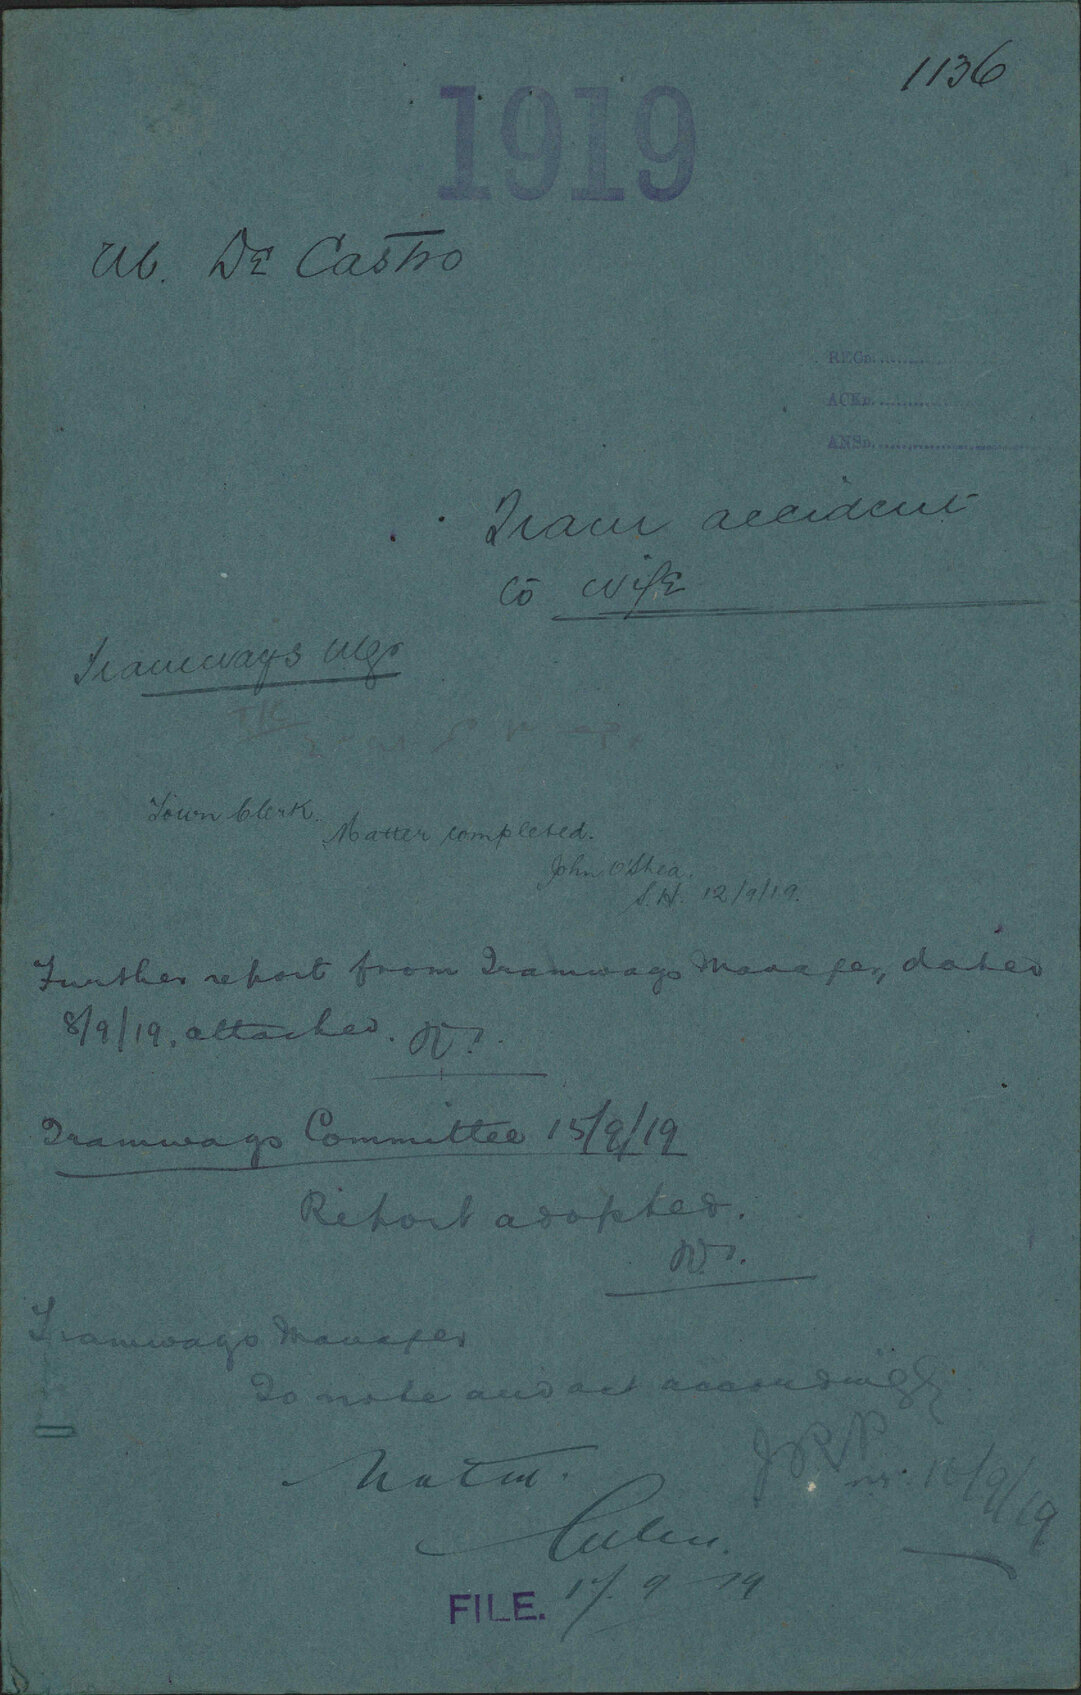 1136
1919
M. De Castro
REGD.
ACKD.
ANSD.
Tram accident
to wife
Tramways Mgr
Town Clerk.
Matter completed.
John O'Shea.
S.H. 12/9/19.
Further report from Tramways Manager, dated
8/9/19, attached.
Tramways Committee 15/9/19
Report adopted.
Tramways Manager
To note and act accordingly.
16/9/19
Noted.
17/9/19
FILE.